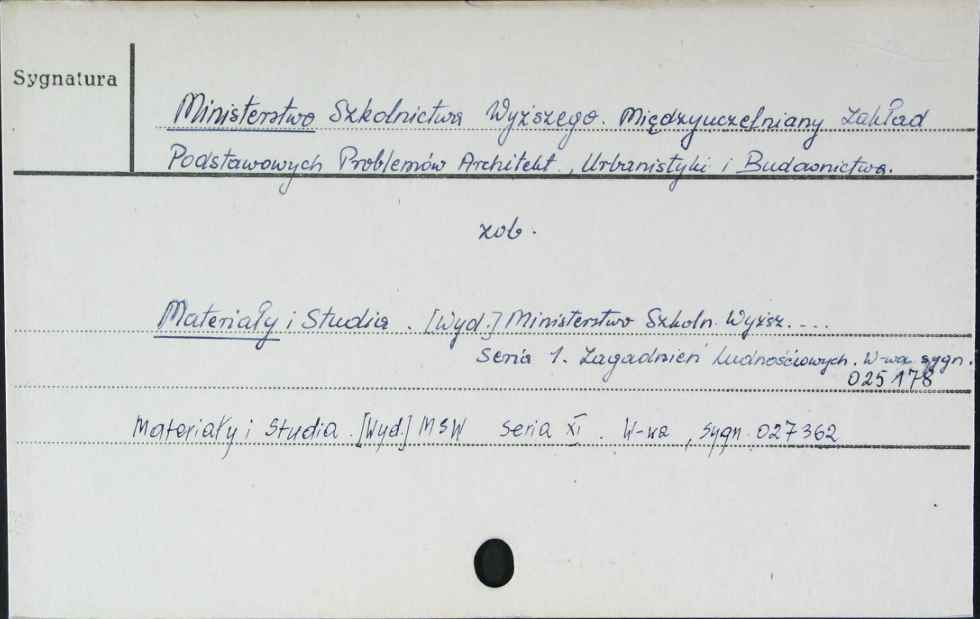 Sygnatura
Ministerstwo Szkolnictwa Wyższego. Międzyuczelniany Zakład
Podstawowych Problemów Architekt., Urbanistyki i Budownictwa.
zob.
Materiały i Studia. [Wyd.] Ministerstwo Szkoln. Wyższ....
Seria 1. Zagadnień Ludnościowych. W-wa sygn.
025178
Materiały i Studia. [Wyd.] MSW Seria XI. W-wa, sygn. 027362